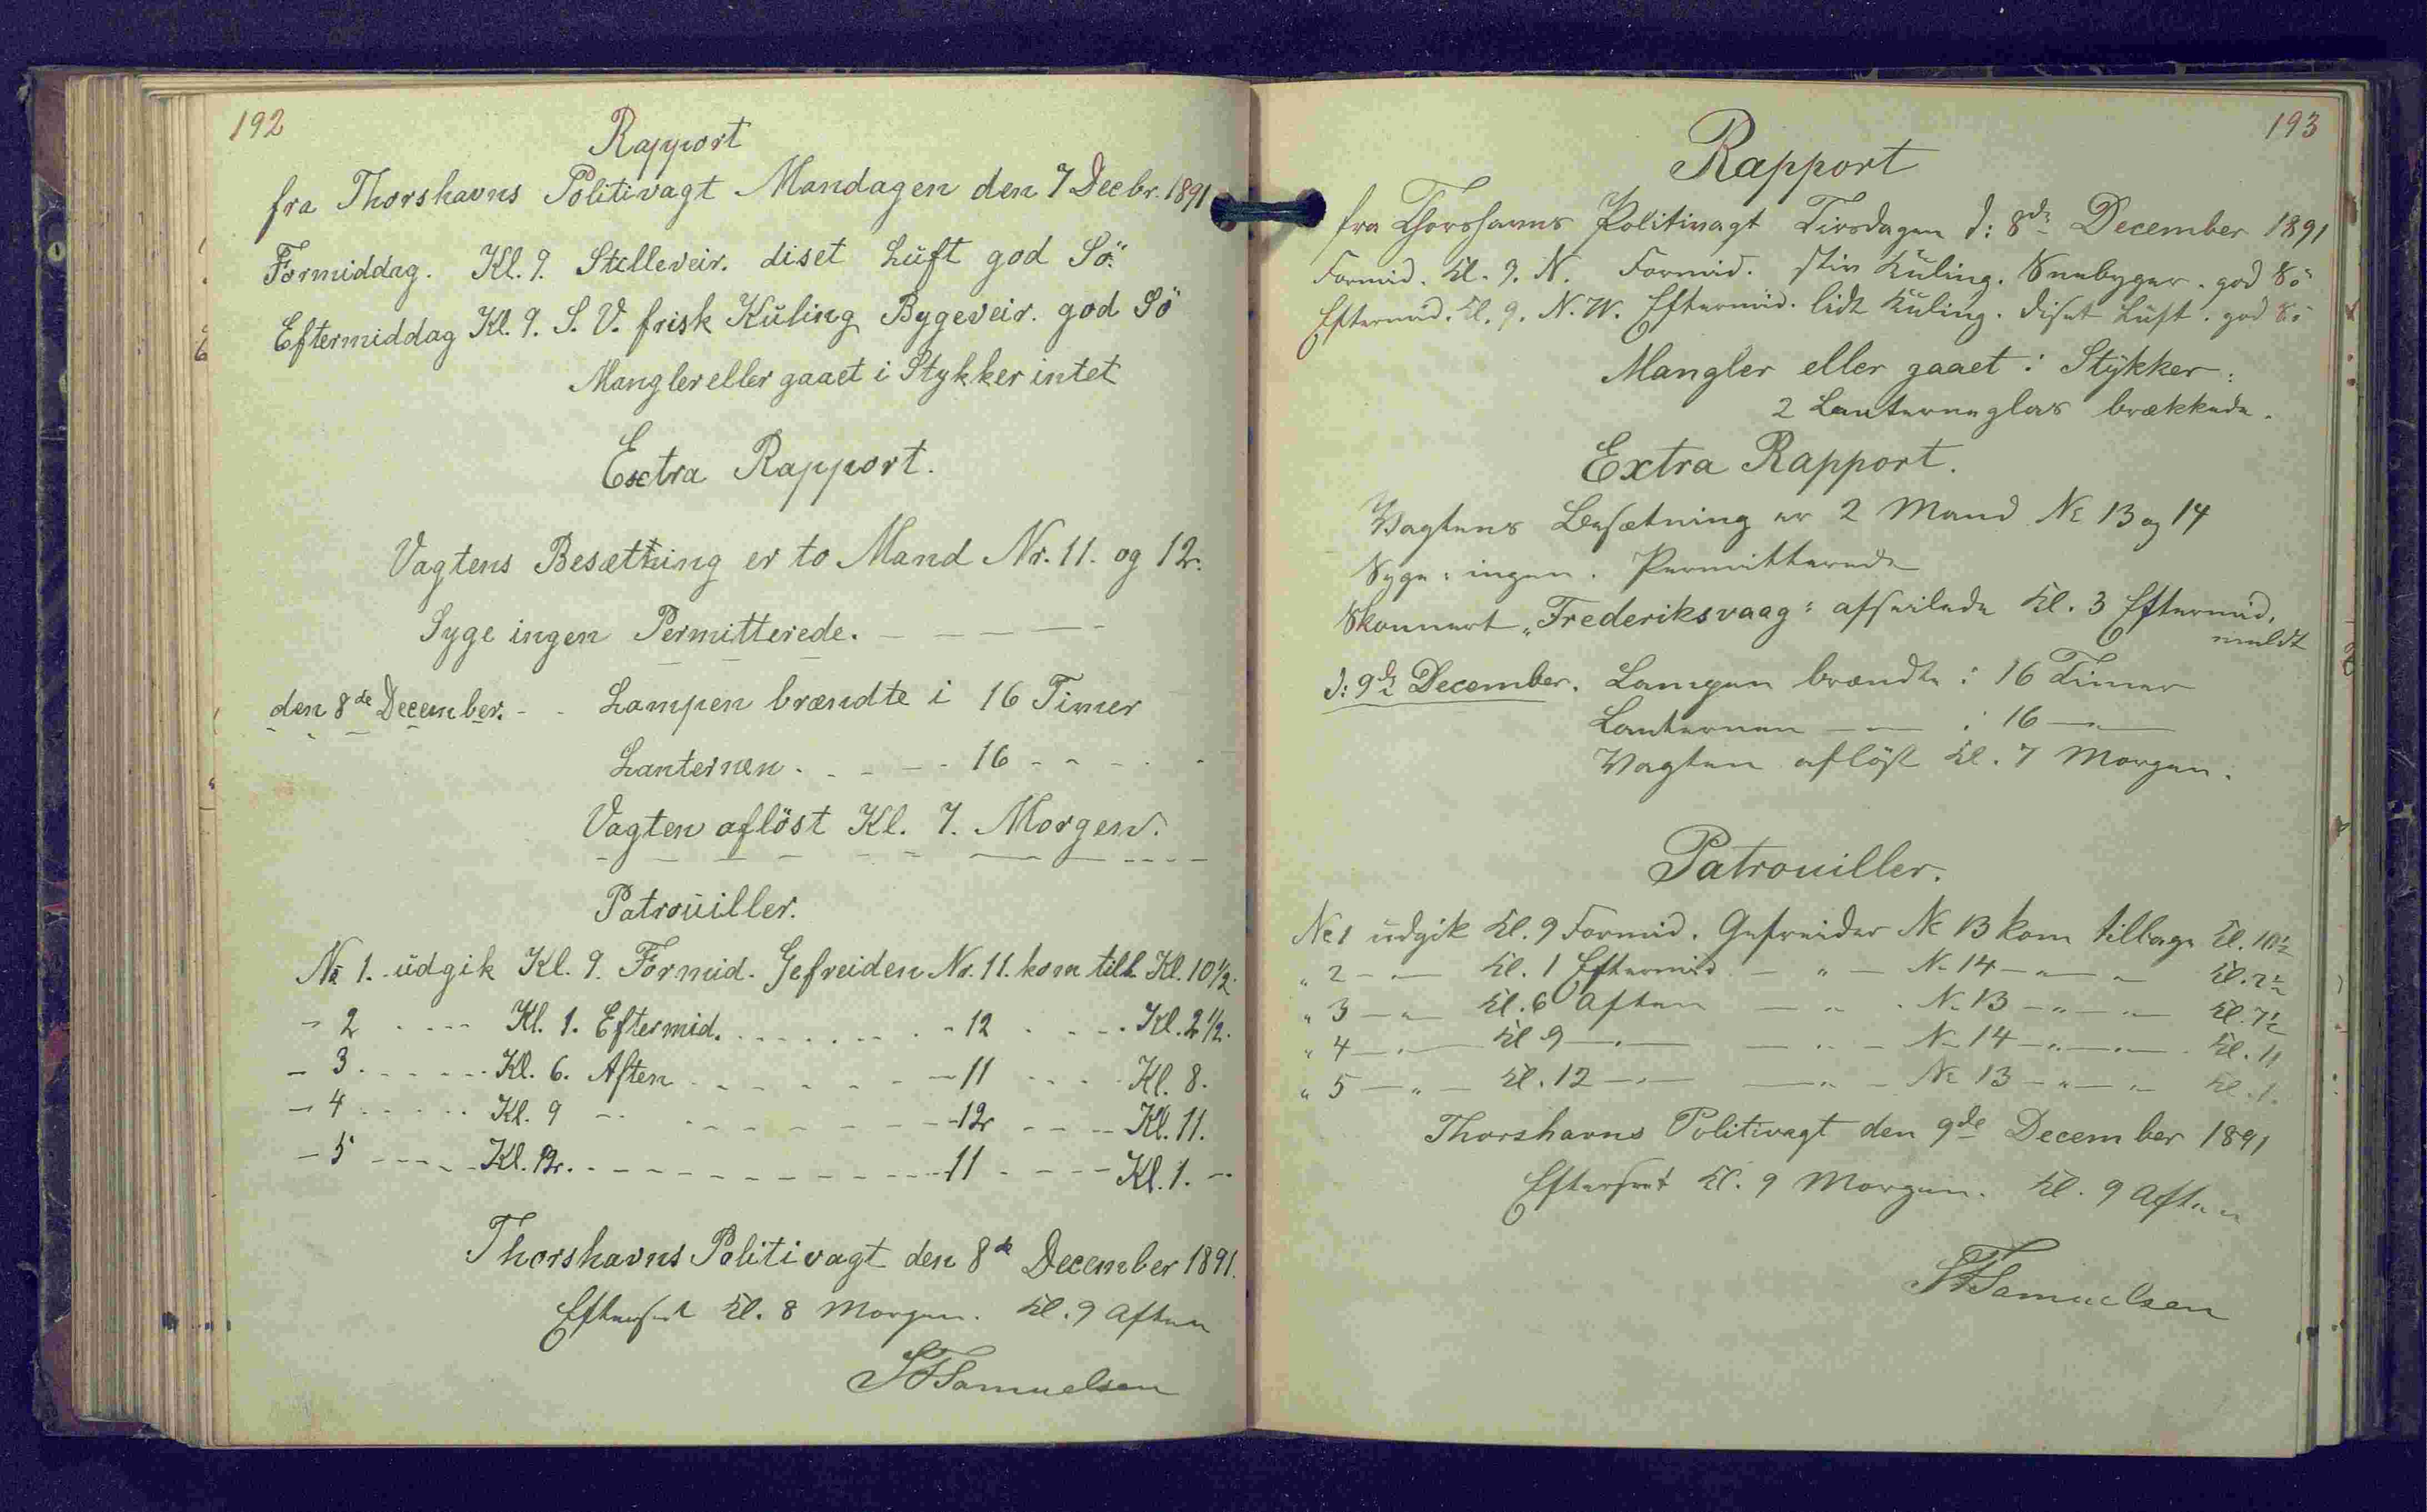 192
Rapport
fra Thorshavns Politivagt Mandagen den 7 Decbr. 1891
Formiddag. Kl. 9. Stilleveir. diset Luft god Sö.
Eftermiddag Kl. 9. S. V. frisk Kuling Bygeveir. god Sö
Mangler eller gaaet i Stykker intet
Extra Rapport.
Vagtens Besætning er to Mand Nr. 11. og 12.
Syge ingen Permitterede. - - - -
den 8de December. - - Lampen brændte i 16 Timer
Lanternen . - - - - 16 - - - -
Vagten aflöst Kl. 7. Morgen.
Patrouiller.
No 1. udgik Kl. 9. Formid. Gefreiden Nr. 11. kom tilb. Kl. 10½.
- 2 - - - - Kl. 1. Eftermid. - - - - - - 12 - - - Kl. 2½.
- 3 - - - - Kl. 6. Aften - - - - - - 11 - - - Kl. 8.
- 4 - - - - Kl. 9 - - - - - - - - 12 - - - Kl. 11.
- 5 - - - - Kl. 12. - - - - - - - - 11 - - - Kl. 1. -
Thorshavns Politivagt den 8de December 1891.
Efterseet Kl. 8 Morgen. Kl. 9 Aften
Samuelsen
193
Rapport
fra Thorshavns Politivagt Tirsdagen d: 8de December 1891
Formid. Kl. 9. N. Formid. stiv Kuling. Sneebyger. god Sö
Eftermid. Kl. 9. N.W. Eftermid. lidt Kuling. diset Luft. god Sö
Mangler eller gaaet i Stykker:
2 Lanterneglas brækkede.
Extra Rapport.
Vagtens Besætning er 2 Mand No 13 og 14
Syge: ingen. Permitterede
Skonnert "Frederiksvaag" afseilede Kl. 3 Eftermid.
d: 9de December. Lampen brændte i 16 Timer
Lanternen — " — i 16 — " —
Vagten aflöst Kl. 7 Morgen.
Patrouiller.
No 1 udgik Kl. 9 Formid. Gefreider No 13 kom tilbage Kl. 10½
" 2 — " — Kl. 1 Eftermid — " — No 14 — " — " — Kl. 2½
" 3 — " — Kl. 6 Aften — " — No 13 — " — " — Kl. 7½
" 4 — " — Kl 9 — " — — " — No 14 — " — " — Kl. 11
" 5 — " — Kl. 12 — " — — " — No 13 — " — " — Kl. 1.
Thorshavns Politivagt den 9de December 1891
Efterseet Kl. 9 Morgen. Kl. 9 Aften
Samuelsen